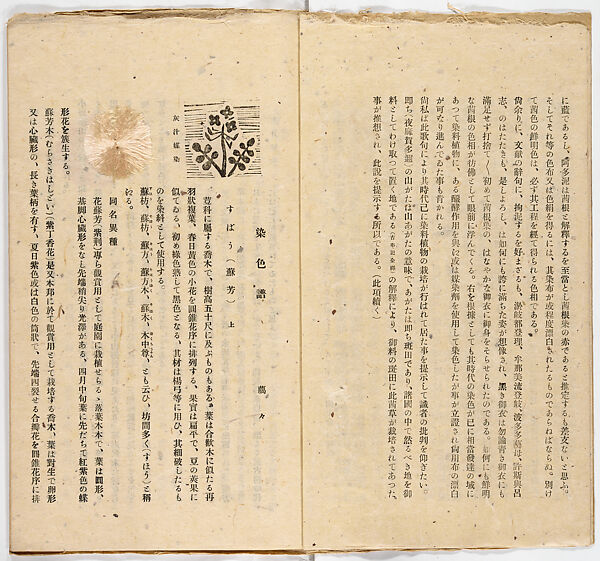 に藍であるし、阿多泥は茜根と解釋するを至當とし茜根染の赤であると推定するも差支ないと思ふ。
そしてそれ等の色布又は色絹を得るには、其染布が或程度漂白されたるものであらねばならぬ。別け
て茜色の鮮明色は、必ず其工程を經て得られる色相である。
尙余りに、文獻の辭句に、拘泥するを好まざるも、淤岐都登理、牟那美流登岐、波多多藝母、許斯與呂
志、のはたたきも、是しよろし、は如何にも誇に滿ちた姿が想像され、黑き御衣は勿論靑き御衣にも
滿足せず打捨て――初めて茜根染の、はなやかな御衣に御身をそらせられたのである。如何にも鮮明
な茜根の色相が彷彿として眼前に浮んでくる。右を根據としても其時代の染色が已に相當發達の域に
あつて染料植物に、ある醱酵作用を與へ或は媒染劑を使用して染色したが事が立證され尙用布の漂白
が可なり進んでゐた事も肯かれる。
尙私は此歌句により其時代已に染料植物の栽培が行はれて居た事を提示して識者の批判を仰ぎたい。
即ち(夜麻賀多邇)の山がたは山あがたの意味で、あがたは即ち斑田であり、諸國の中で然るべき地を御
料としてわけ取つて置く地である の解釋により、御料の斑田に此茜草が栽培されてあつた、
事が推想され、此說を提示する所以である。(此項續く)
染色譜
萬々
すはう(蘇芳) 上
灰汁媒染
荳科に屬する喬木で、樹高五十尺に及ぶものもある。葉は合歡木に似たる再
羽狀複葉、春日黃色の小花を圓錐花序に排列する、果實は扁平で、夏の莢果に
似てゐる、初め綠色熟して黑色となる、其材は楊弓等に用ひ、其細破したるも
のを染料として使用する。
蘇枋、蘇枋、蘇方、蘇方木、蘇木、木中尊、とも云ひ、坊間多く(すほう)と稱
へる。
同名異種
花蘇芳(紫荊)專ら觀賞用として庭園に栽植せらる、落葉木本で、葉は圓形、
基脚心臟形をなし先端稍尖り光澤がある、四月中旬葉に先だちて紅紫色の蝶
形花を簇生する。
蘇芳木(むらさきはしどい)(紫丁香花)是又本邦に於て觀賞用として栽培する喬木、葉は對生で卵形
又は心臟形の、長き葉柄を有す、夏日紫色或は白色の筒狀で、先端四裂せる合瓣花を圓錐花序に排